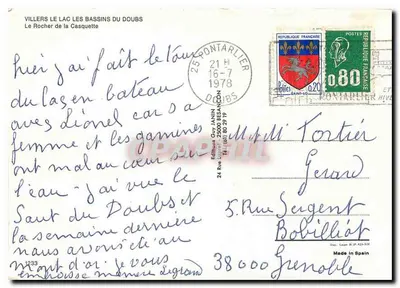 VILLERS LE LAC LES BASSINS DU DOUBS
Le Rocher de la Casquette
hier j'ai fait le tour
du lac en bateau
avec Lionel car sa
femme et les gamines
ont mal au cœur sur
l'eau - j'ai vu le
Saut du Doubs et
la semaine dernière
nous avons été au
mont d'or. je vous
embrasse
1233
Editions Guy JANIN
25000 BESANCON
Tél. (81) 80 29 19
25 PONTARLIER
21 H
16-7
1978
DOUBS
REPUBLIQUE FRANÇAISE
0,20
SAINT-LO
POSTES
0,80
REPUBLIQUE FRANÇAISE
PONTARLIER
M. Mme Tortier
Gérard
5. Rue Sergent
Bobilliot
38000 Grenoble
Made in Spain